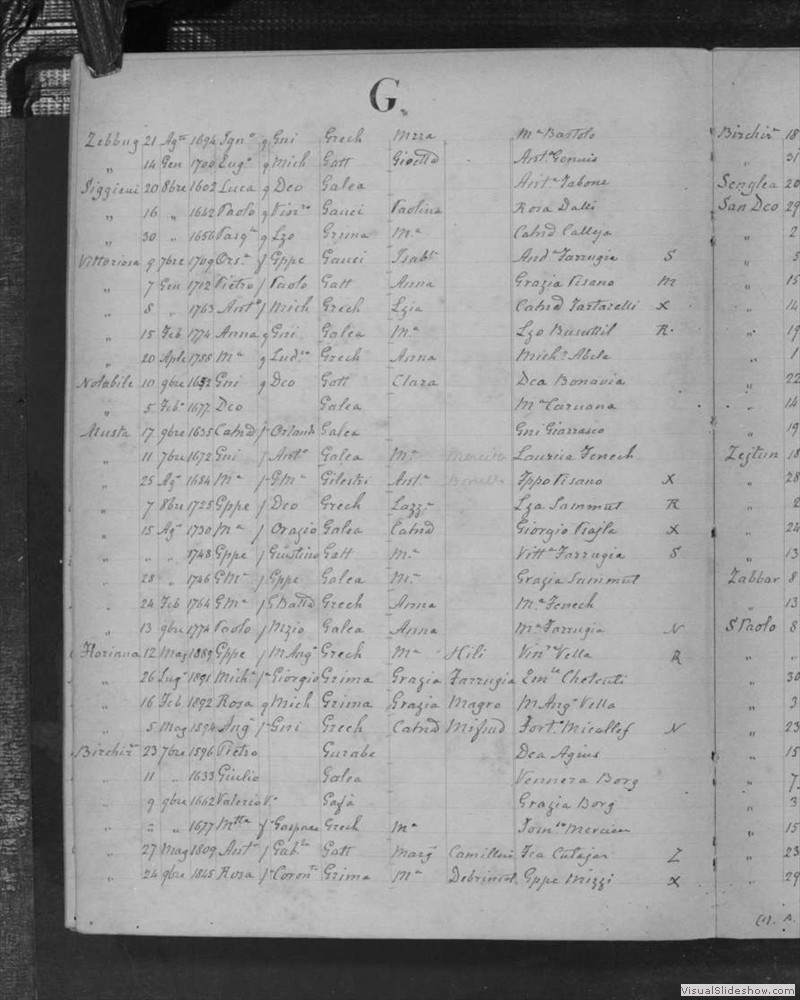 G.
Zebbug 21 Agto 1694 Igno q Gni Grech Mzza Ma Bartolo Birchira 18
" 14 Gen 1700 Eugo q Mich Gatt Gioetta Anta Genuis " 31
Siggieui 20 8bre 1602 Luca q Dco Galea Anta Tabone Senglea 20
" 16 " 1642 Paolo q Vinzo Gauci Paolina Rosa Dalli San Dco 29
" 30 " 1656 Pasqa q Lzo Grima Ma Catnd Calleja " 2
Vittoriosa 9 7bre 1709 Orsa f Gppe Gauci Isabla Anda Farrugia S " 5
" 7 Gen 1712 Pietro f Paolo Gatt Anna Grazia Pisano M " 15
" 8 " 1763 Anto f Mich Grech Lzia Catnd Tartarelli X " 14
" 15 Feb 1774 Anna q Gni Galea Ma Lzo Busuttil R " 19
" 20 Aple 1788 Ma q Ludco Grech Anna Micha Abela " 1
Notabile 10 9bre Gni q Dco Gatt Clara Dca Bonavia " 22
" 5 Feb 1677 Dco Galea Ma Caruana " 14
Musta 17 9bre 1635 Catnd f Orlando Galea Gni Giarrasco " 19
" 11 7bre 1672 Gni f Anto Galea Ma Laurica Fenech Zejtun 18
" 25 Ago 1684 Ma f GMa Gilestri Anta Bonello Ippo Pisano X " 28
" 7 8bre 1725 Gppe f Dco Grech Lazza Lza Sammut R " 2
" 15 Ago 1730 Ma f Orazio Galea Catnd Giorgio Psajla X " 24
" " " 1748 Gppe f Giustino Gatt Ma Vitta Farrugia S " 13
" 28 " 1746 GMa f Gppe Galea Ma Grazia Sammut Zabbar 8
" 24 Feb 1764 GMa f GBatta Grech Anna Ma Fenech " 13
" 13 9bre 1774 Paolo f Mzio Galea Anna Ma Farrugia N S Paolo 8
Floriana 12 Mag 1889 Gppe f MAngo Grech Ma Hili Vinza Vella R " "
" 26 Lugo 1891 Miche f Giorgio Grima Grazia Farrugia Emla Chetcuti " 30
" 16 Feb 1892 Rosa q Mich Grima Grazia Magro MAnga Vella " 3
" 5 Mag 1894 Ango f Gni Grech Catnd Mifsud Forta Micallef N " 23
Birchira 23 7bre 1596 Pietro Gurabe Dca Agius " 15
" 11 " 1633 Giulio Galea Vennera Borg " 7
" 9 9bre 1662 Valerio Va Gafà Grazia Borg " 3
" = " 1677 Mtta f Gaspare Grech Ma Mercieca " 15
" 27 Mag 1809 Anto f Gable Gatt Marga Camilleri Fca Cutajar Z " 23
" 24 9bre 1845 Rosa f Grima Ma Debrincat Gppe Mizzi X " 29
(1). A.
VisualSlideshow.com